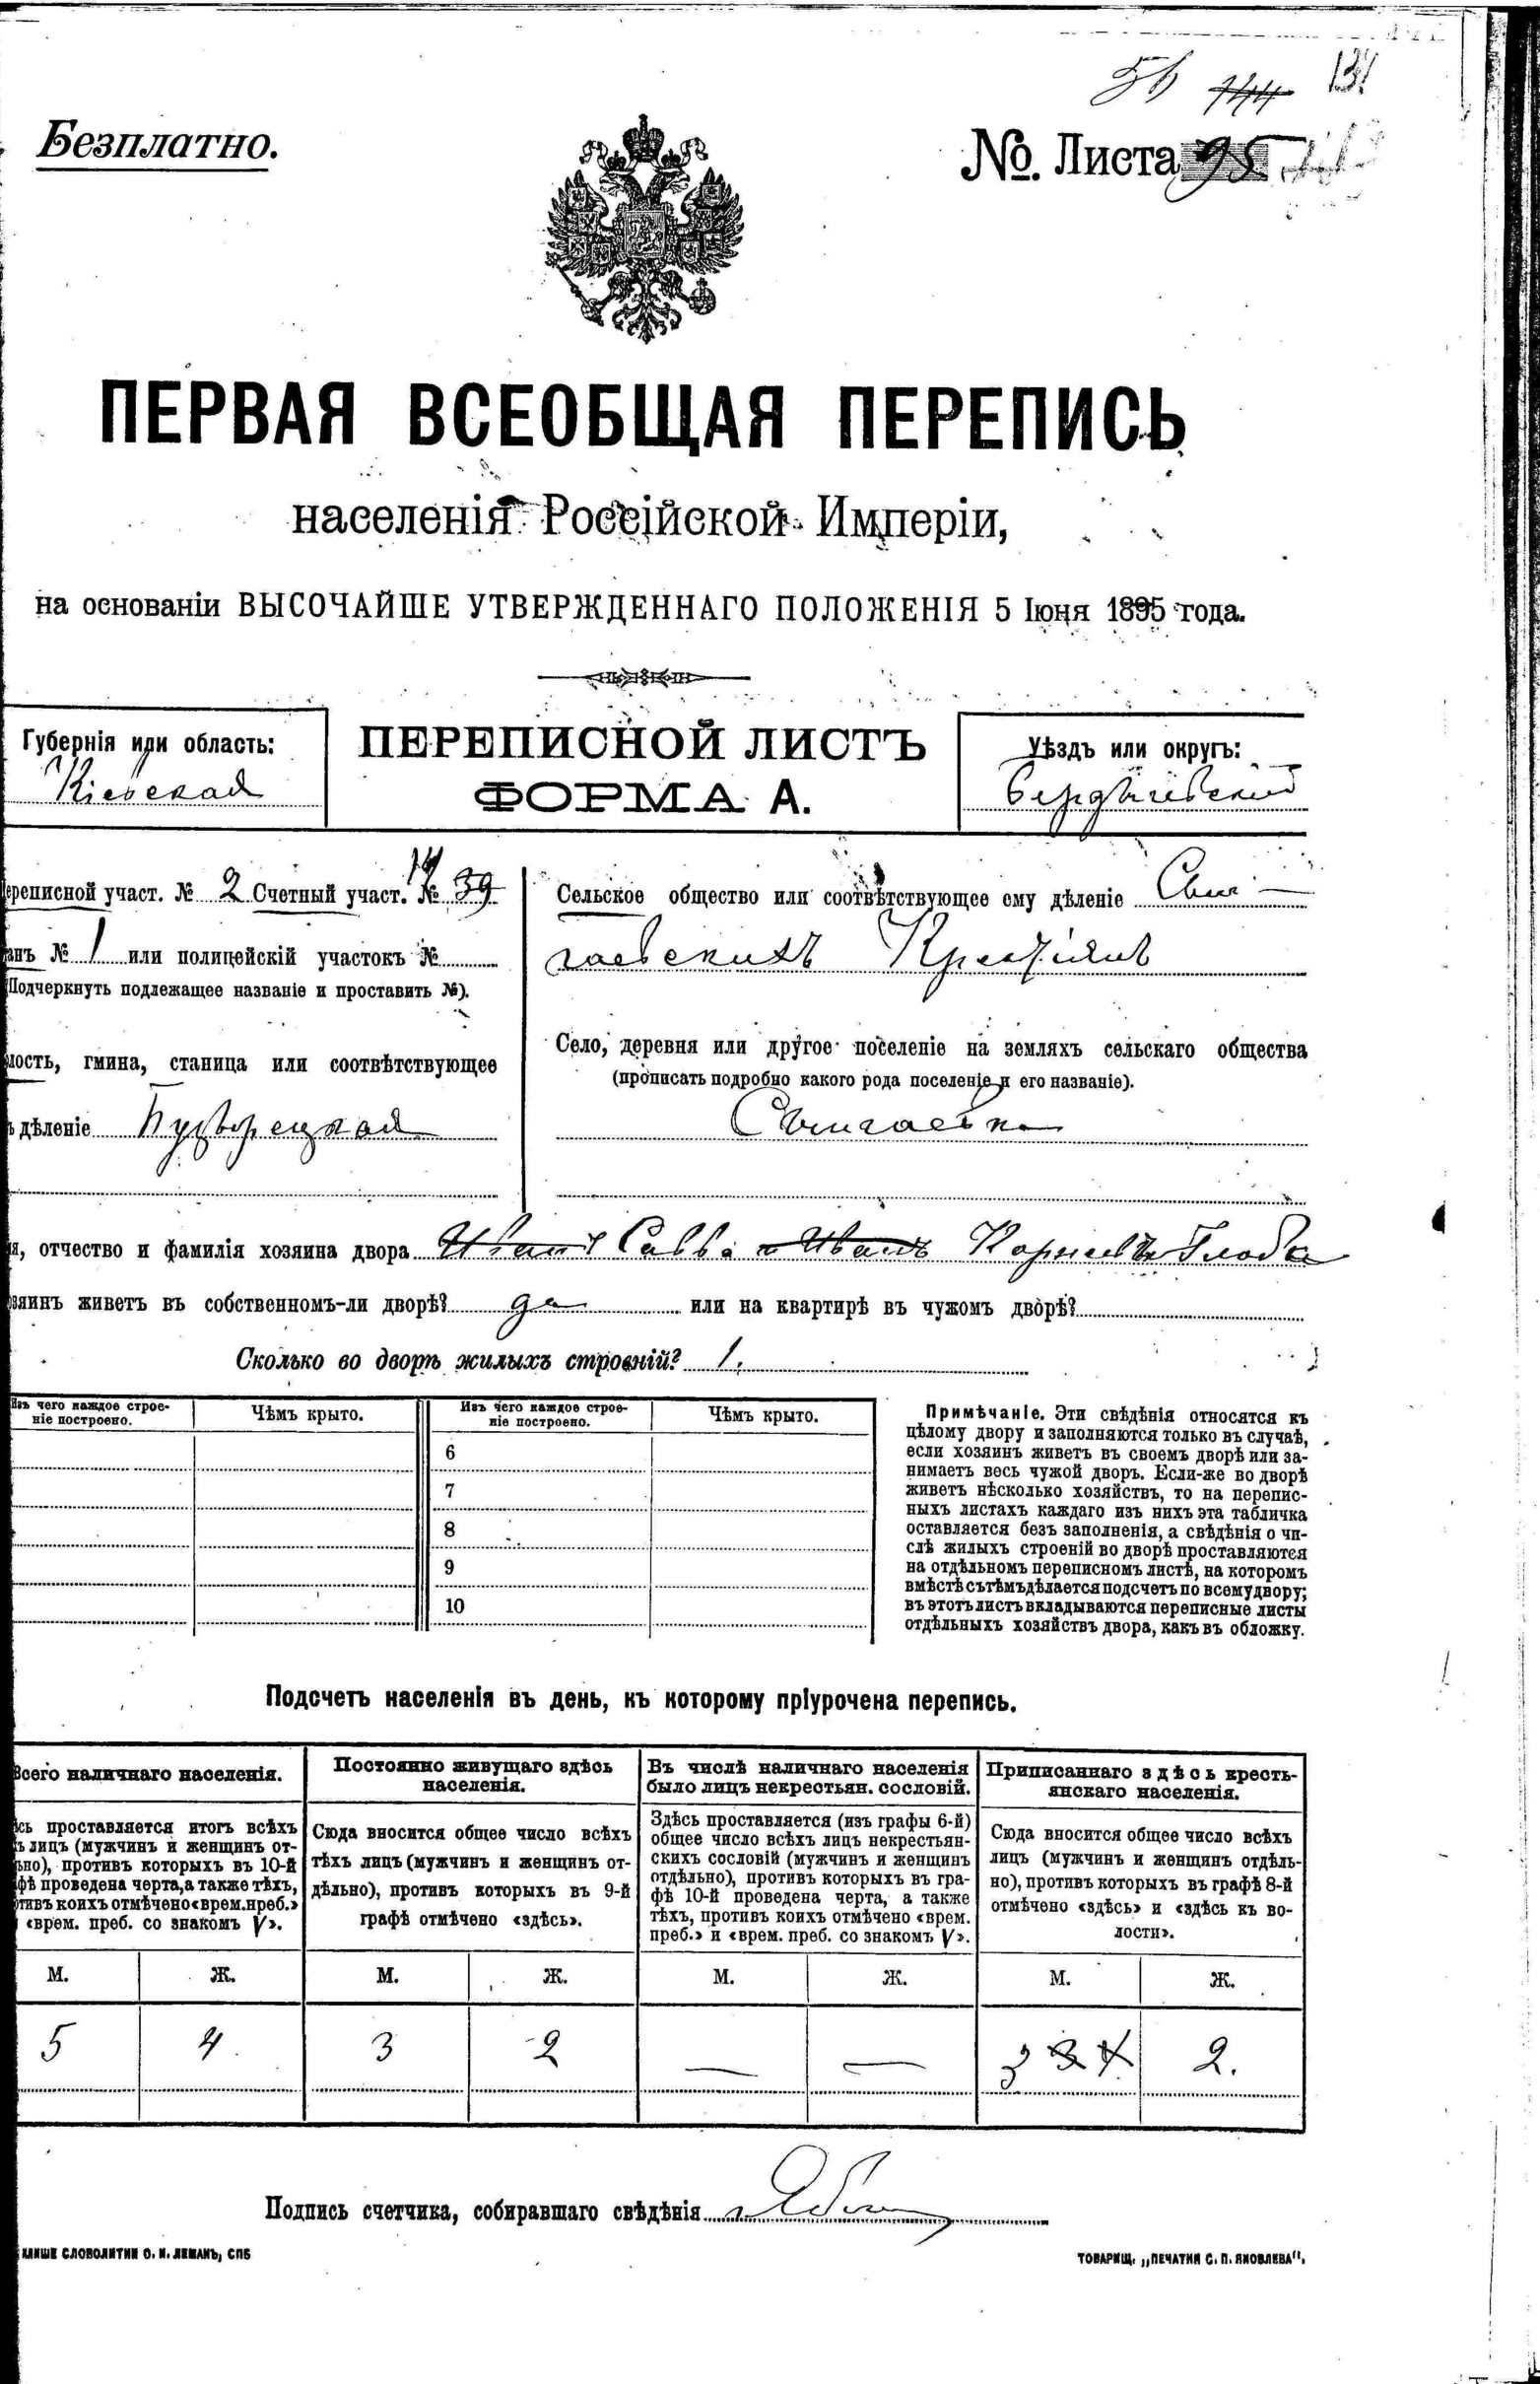 56 144 131
Безплатно.
№. Листа 95
ПЕРВАЯ ВСЕОБЩАЯ ПЕРЕПИСЬ
населенія Россійской Имперіи,
на основаніи ВЫСОЧАЙШЕ УТВЕРЖДЕННАГО ПОЛОЖЕНІЯ 5 Іюня 1895 года.
Губернія или область:
Кіевская
ПЕРЕПИСНОЙ ЛИСТЪ
ФОРМА А.
Уѣздъ или округъ:
Бердичевскій
ереписной участ. № 2 Счетный участ. № 39
14
анъ № 1 или полицейскій участокъ №
Подчеркнуть подлежащее названіе и проставить №).
лость, гмина, станица или соотвѣтствующее
ъ дѣленіе
Сельское общество или соотвѣтствующее ему дѣленіе
гаевскихъ Крестьянъ
Село, деревня или другое поселеніе на земляхъ сельскаго общества
(прописать подробно какого рода поселеніе и его названіе).
я, отчество и фамилія хозяина двора Иванъ Савва и Иванъ Корнѣевъ Глоба
озяинъ живетъ въ собственномъ-ли дворѣ? да или на квартирѣ въ чужомъ дворѣ?
Сколько во дворѣ жилыхъ строеній? 1.
Изъ чего каждое строе-
ніе построено.
Чѣмъ крыто.
Изъ чего каждое строе-
ніе построено.
Чѣмъ крыто.
6
7
8
9
10
Примѣчаніе. Эти свѣдѣнія относятся къ
цѣлому двору и заполняются только въ случаѣ,
если хозяинъ живетъ въ своемъ дворѣ или за-
нимаетъ весь чужой дворъ. Если-же во дворѣ
живетъ нѣсколько хозяйствъ, то на перепис-
ныхъ листахъ каждаго изъ нихъ эта табличка
оставляется безъ заполненія, а свѣдѣнія о чи-
слѣ жилыхъ строеній во дворѣ проставляются
на отдѣльномъ переписномъ листѣ, на которомъ
вмѣстѣ съ тѣмъ дѣлается подсчетъ по всему двору;
въ этотъ листъ вкладываются переписные листы
отдѣльныхъ хозяйствъ двора, какъ въ обложку.
Подсчетъ населенія въ день, къ которому пріурочена перепись.
Всего наличнаго населенія.
сь проставляется итогъ всѣхъ
ъ лицъ (мужчинъ и женщинъ от-
ьно), противъ которыхъ въ 10-й
фѣ проведена черта, а также тѣхъ,
отивъ коихъ отмѣчено «врем. преб.»
«врем. преб. со знакомъ V».
Постоянно живущаго здѣсь
населенія.
Сюда вносится общее число всѣхъ
тѣхъ лицъ (мужчинъ и женщинъ от-
дѣльно), противъ которыхъ въ 9-й
графѣ отмѣчено «здѣсь».
Въ числѣ наличнаго населенія
было лицъ некрестьян. сословій.
Здѣсь проставляется (изъ графы 6-й)
общее число всѣхъ лицъ некрестьян-
скихъ сословій (мужчинъ и женщинъ
отдѣльно), противъ которыхъ въ гра-
фѣ 10-й проведена черта, а также
тѣхъ, противъ коихъ отмѣчено «врем.
преб.» и «врем. преб. со знакомъ V».
Приписаннаго здѣсь кресть-
янскаго населенія.
Сюда вносится общее число всѣхъ
лицъ (мужчинъ и женщинъ отдѣль-
но), противъ которыхъ въ графѣ 8-й
отмѣчено «здѣсь» и «здѣсь къ во-
лости».
М. Ж. М. Ж. М. Ж. М. Ж.
5 4 3 2 — — 3 3 4 2.
Подпись счетчика, собиравшаго свѣдѣнія
КЛИШЕ СЛОВОЛИТНИ О. И. ЛЕМАНЪ, СПБ
ТОВАРИЩ. „ПЕЧАТНИ С. П. ЯКОВЛЕВА".